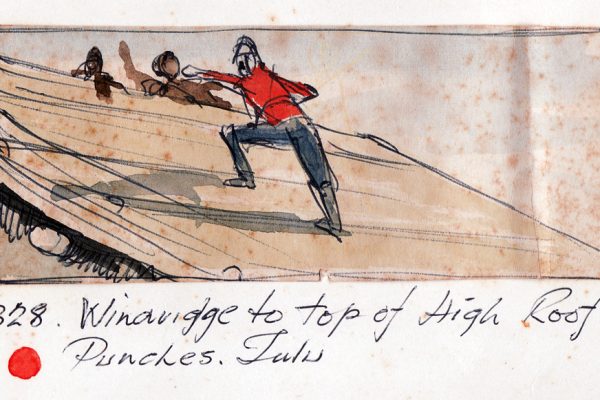 328. Windridge to top of High Roof
Punches. Zulu